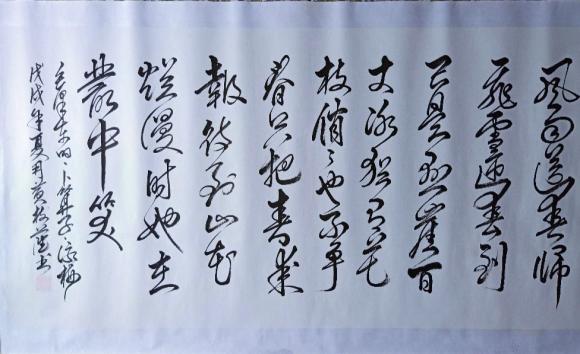 风雨送春归
飞雪迎春到
已是悬崖百
丈冰犹有花
枝俏俏也不争
春只把春来
報待到山花
烂漫时她在
叢中笑
毛泽东词卜算子咏梅
戊戌年夏月黄 书